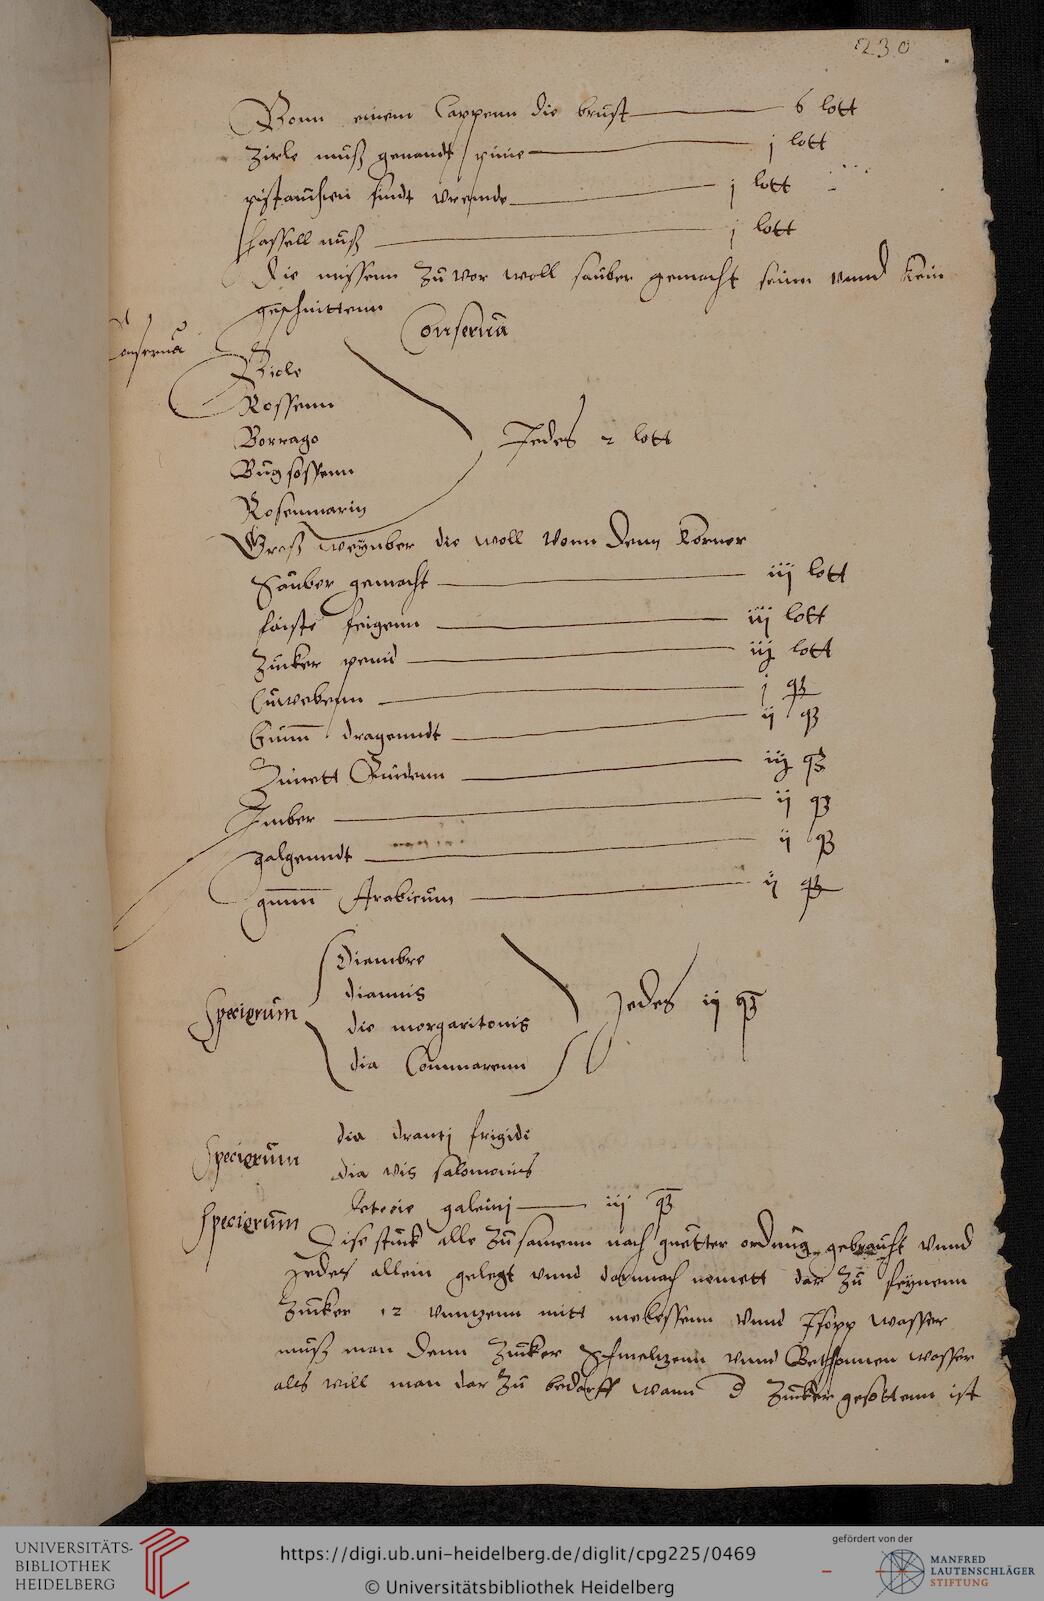 230
Vonn einem Cappenn die brust 6 lott
Zirle nüß genandt pinie j lott
pistauschen sindt vremde j lott
Hassell nüß j lott
die nüssenn zu vor woll sauber gemacht seinn vnnd klein
geschnittenn
Conserua
Conserua
Viole
Rossenn
Borrago
Bugsossenn
Rosenmarin
Jedes 2 lott
Groß weynber die woll vonn denn körner
Sauber gemacht iij lott
faiste feigenn iij lott
Zucker penid iij lott
Cuwebenn j q
Gumi dragenndt ij q
Zimett Rindenn iij q
Imber ij q
galgenndt ij q
gummi Arabicum ij q
Speciorum
Diambre
diannis
die morgaritonis
dia Commarenn
Jedes ij q
Speciorum
dia dranti frigidi
dia vis salomonis
Speciorum
letecie galeini iij q
Dise stuck alle zu samenn nach guetter ordnung gebraucht vnnd
Jedes allein gelegt vnnd darnach nemett dar zu feynenn
Zucker 12 vnnzenn mitt melissenn vnnd Isopp wasser
muß man denn Zucker schmeltzenn vnnd Bethonnen wasser
als vill man dar zu bedarff wann d Zucker gesottenn ist
UNIVERSITÄTS-
BIBLIOTHEK
HEIDELBERG
https://digi.ub.uni-heidelberg.de/diglit/cpg225/0469
© Universitätsbibliothek Heidelberg
gefördert von der
MANFRED
LAUTENSCHLÄGER
STIFTUNG